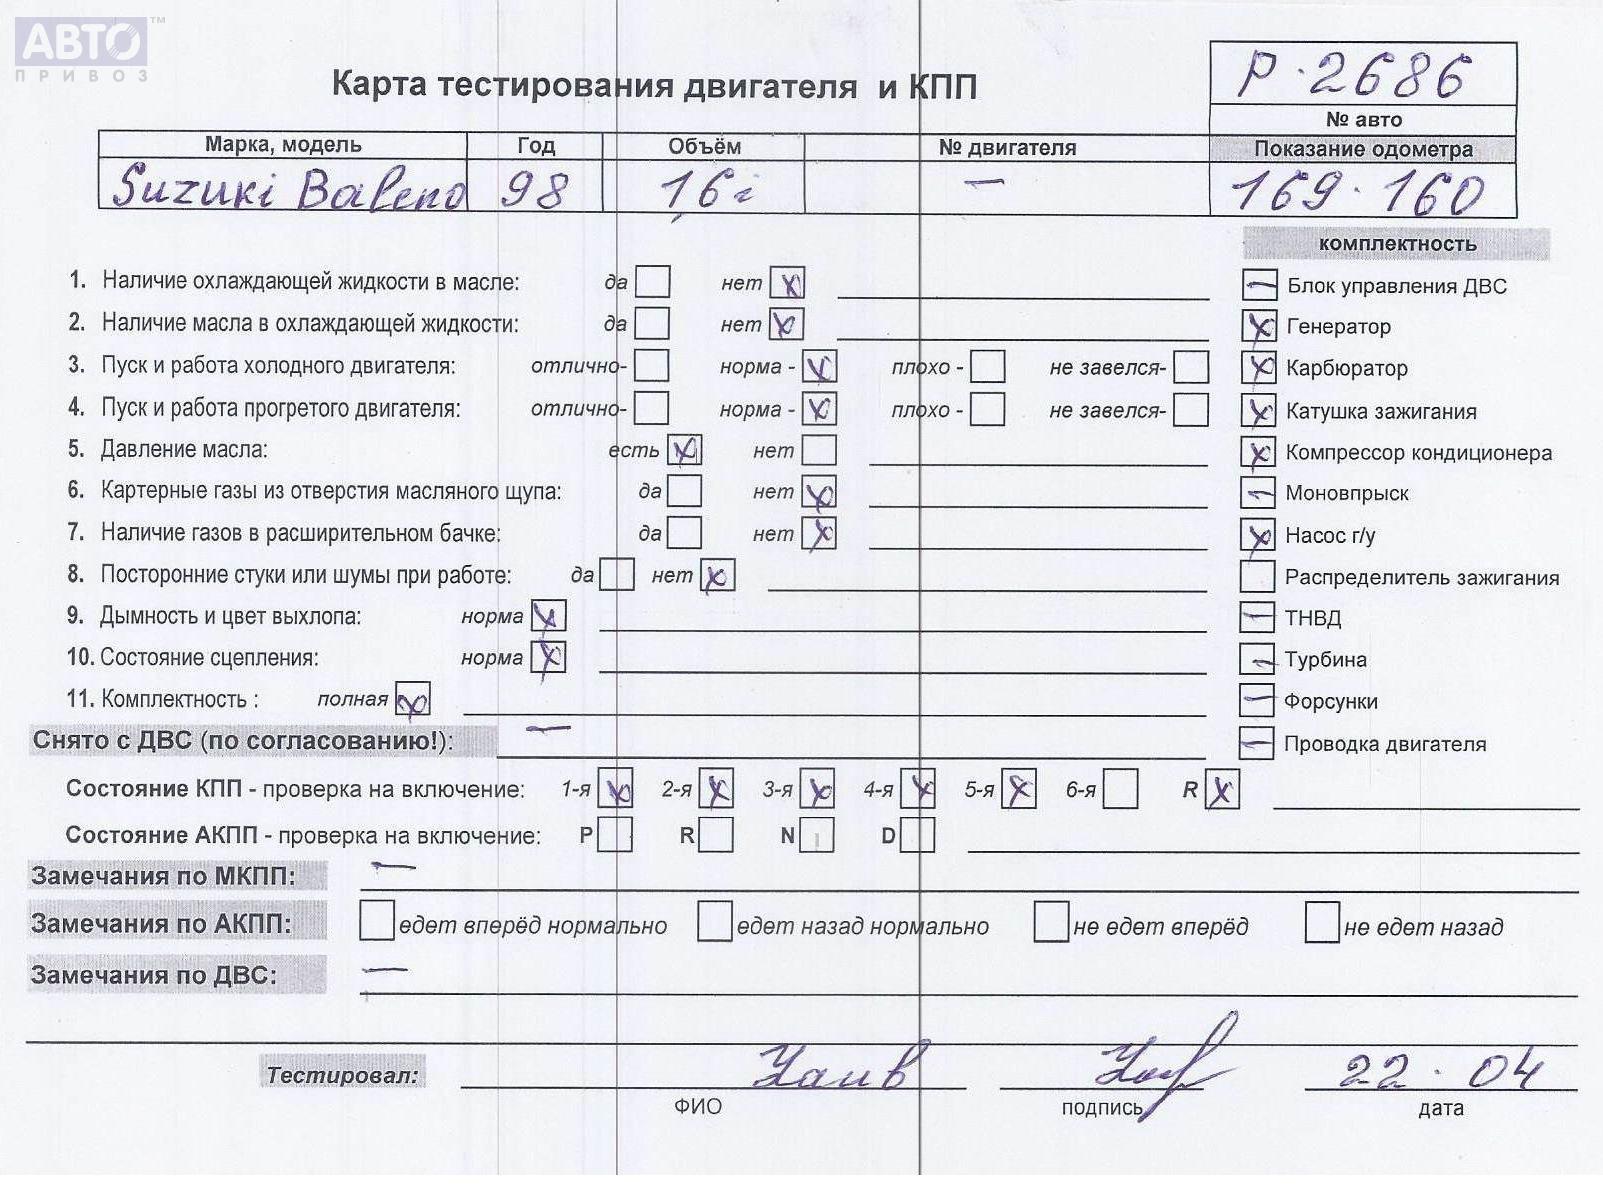 АВТО™
ПРИВОЗ
Карта тестирования двигателя и КПП
P·2686
№ авто
Марка, модель Год Объём № двигателя Показание одометра
Suzuki Baleno 98 1,6i — 169·160
комплектность
1. Наличие охлаждающей жидкости в масле: да нет x
— Блок управления ДВС
2. Наличие масла в охлаждающей жидкости: да нет x
x Генератор
3. Пуск и работа холодного двигателя: отлично- норма - x плохо - не завелся-
x Карбюратор
4. Пуск и работа прогретого двигателя: отлично- норма - x плохо - не завелся-
x Катушка зажигания
5. Давление масла: есть x нет
x Компрессор кондиционера
6. Картерные газы из отверстия масляного щупа: да нет x
— Моновпрыск
7. Наличие газов в расширительном бачке: да нет x
x Насос г/у
8. Посторонние стуки или шумы при работе: да нет x
Распределитель зажигания
9. Дымность и цвет выхлопа: норма x
— ТНВД
10. Состояние сцепления: норма x
— Турбина
11. Комплектность : полная x
— Форсунки
Снято с ДВС (по согласованию!): —
— Проводка двигателя
Состояние КПП - проверка на включение: 1-я x 2-я x 3-я x 4-я x 5-я x 6-я R x
Состояние АКПП - проверка на включение: P R N D
Замечания по МКПП: —
Замечания по АКПП: едет вперёд нормально едет назад нормально не едет вперёд не едет назад
Замечания по ДВС: —
Тестировал: 22·04
ФИО подпись дата